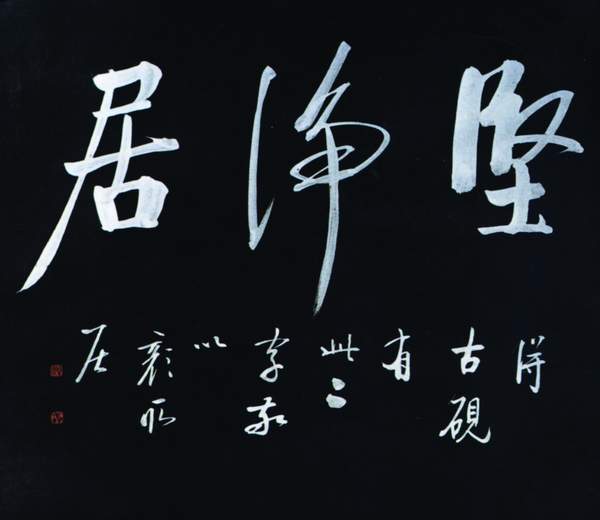 堅淨居
得古硯有此二字以顏所居